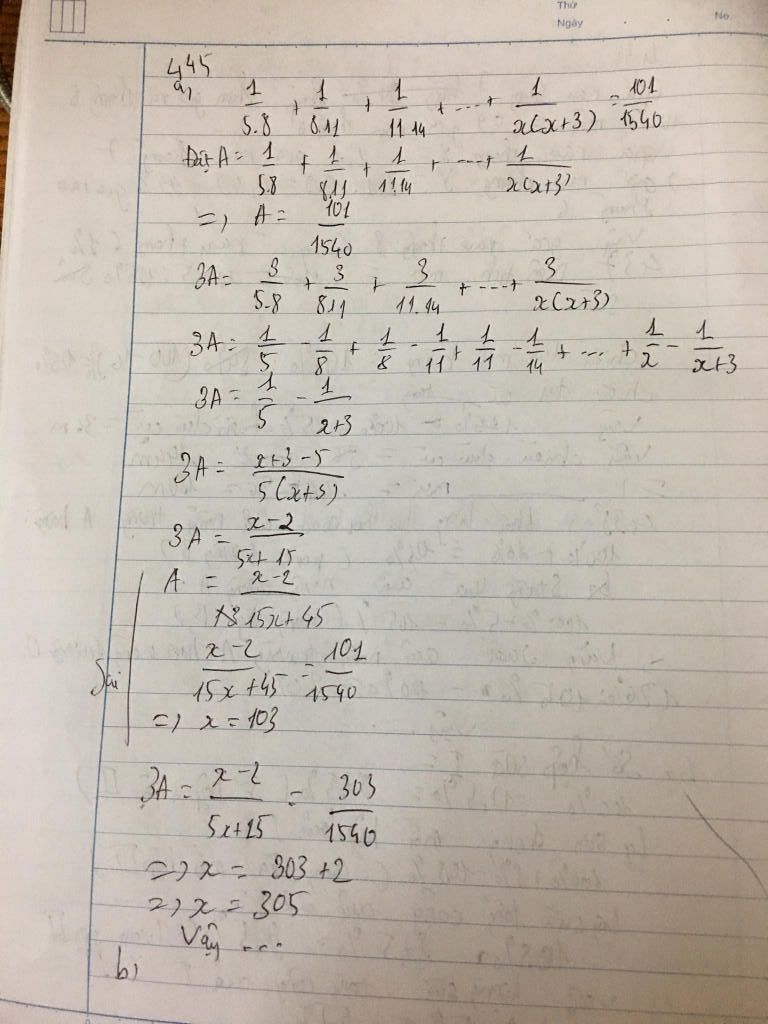 Thứ
Ngày
No
445
a, 1/5.8 + 1/8.11 + 1/11.14 + ... + 1/x(x+3) = 101/1540
Đặt A = 1/5.8 + 1/8.11 + 1/11.14 + ... + 1/x(x+3)
=> A = 101/1540
3A = 3/5.8 + 3/8.11 + 3/11.14 + ... + 3/x(x+3)
3A = 1/5 - 1/8 + 1/8 - 1/11 + 1/11 - 1/14 + ... + 1/x - 1/x+3
3A = 1/5 - 1/x+3
3A = x+3-5/5(x+3)
3A = x-2/5x+15
A = x-2/15x+45
Sai x-2/15x+45 = 101/1540
=> x = 103
3A = x-2/5x+15 = 303/1540
=> x = 303+2
=> x = 305
Vậy ...
b)